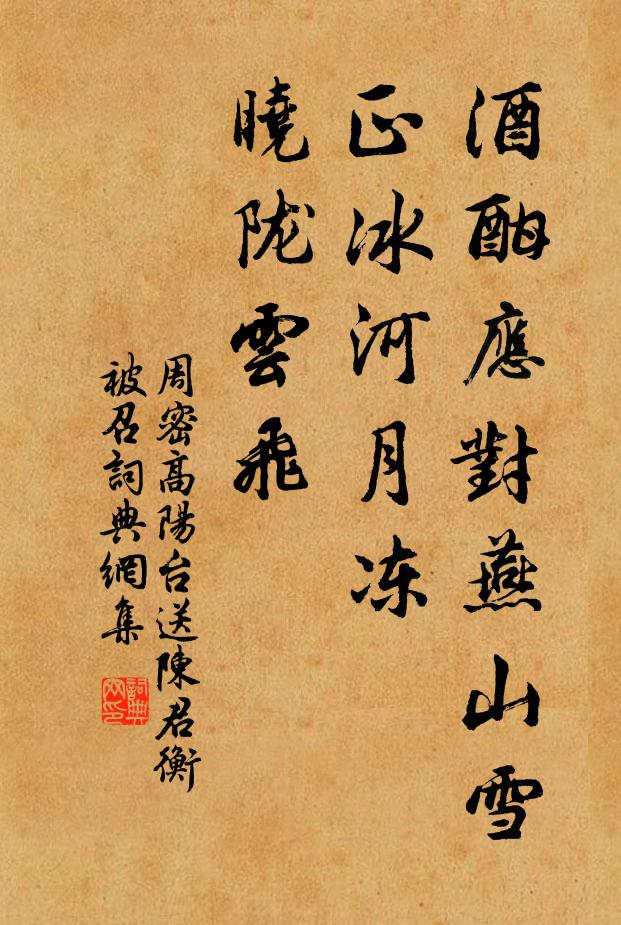 酒酣應對燕山雪
正冰河月冻
曉陇雲飛
周密高陽台送陳君衡
被召詞典網集
詞典网印